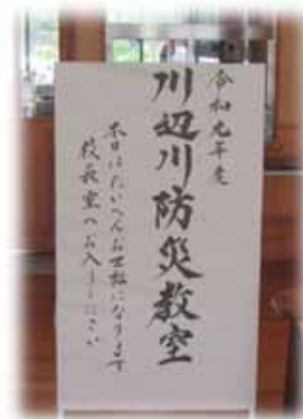 令和元年度
川辺川防災教室
本日はたいへんお世話になります
校長室へお入りください